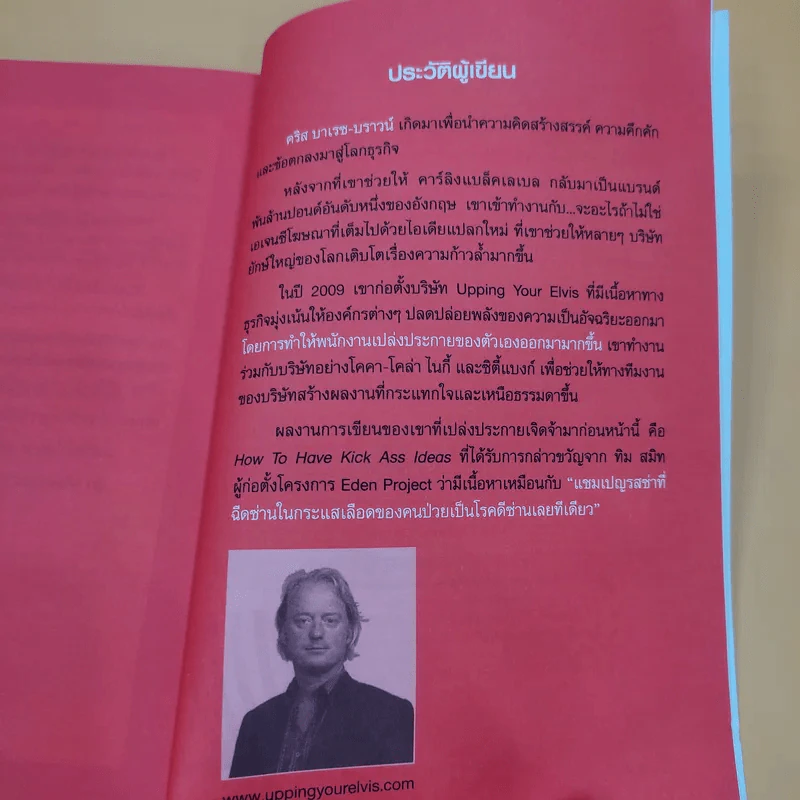 ประวัติผู้เขียน
คริส บาเรซ-บราวน์ เกิดมาเพื่อนำความคิดสร้างสรรค์ ความคึกคัก
และข้อตกลงมาสู่โลกธุรกิจ
หลังจากที่เขาช่วยให้ คาร์ลิงแบล็คเลเบล กลับมาเป็นแบรนด์
พันล้านปอนด์อันดับหนึ่งของอังกฤษ เขาเข้าทำงานกับ...จะอะไรถ้าไม่ใช่
เอเจนซีโฆษณาที่เต็มไปด้วยไอเดียแปลกใหม่ ที่เขาช่วยให้หลายๆ บริษัท
ยักษ์ใหญ่ของโลกเติบโตเรื่องความก้าวล้ำมากขึ้น
ในปี 2009 เขาก่อตั้งบริษัท Upping Your Elvis ที่มีเนื้อหาทาง
ธุรกิจมุ่งเน้นให้องค์กรต่างๆ ปลดปล่อยพลังของความเป็นอัจฉริยะออกมา
โดยการทำให้พนักงานเปล่งประกายของตัวเองออกมามากขึ้น เขาทำงาน
ร่วมกับบริษัทอย่างโคคา-โคล่า ไนกี้ และซิตี้แบงก์ เพื่อช่วยให้ทางทีมงาน
ของบริษัทสร้างผลงานที่กระแทกใจและเหนือธรรมดาขึ้น
ผลงานการเขียนของเขาที่เปล่งประกายเจิดจ้ามาก่อนหน้านี้ คือ
How To Have Kick Ass Ideas ที่ได้รับการกล่าวขวัญจาก ทิม สมิท
ผู้ก่อตั้งโครงการ Eden Project ว่ามีเนื้อหาเหมือนกับ “แชมเปญรสซ่าที่
ฉีดซ่านในกระแสเลือดของคนป่วยเป็นโรคดีซ่านเลยทีเดียว”
www.uppingyourelvis.com